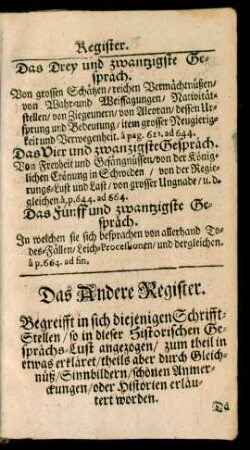 Register.
Das Drey und zwantzigste Ge-
spräch.
Von grossen Schätzen/reichen Vermächtnüßen/
von Wahr-und Weissagungen/ Nativität-
stellen/ von Ziegeunern/ von Alcoran/ dessen Ur-
sprung und Bedeutung/ item grosser Neugierig-
keit und Verwegenheit. à pag. 621. ad 644.
Das Vier und zwanzigste Gespräch.
Von Freyheit und Gefängnüssen/von der König-
lichen Crönung in Schweden / von der Regie-
rungs-Lust und Last/ von grosser Ungnade/ u. d.
gleichen. à p. 644. ad 664.
Das Fünff und zwantzigste Ge-
spräch.
In welchen sie sich besprachen von allerhand To-
des-Fällen/ Leich-Processionen/ und dergleichen.
à p. 664. ad fin.
Das Andere Register.
Begreifft in sich diejenigen Schrifft-
Stellen/ so in dieser Historischen Ge-
sprächs-Lust angezogen/ zum theil in
etwas erkläret/theils aber durch Gleich-
nüß/Sinnbildern/schönen Anmer-
ckungen/oder Historien erläu-
tert worden.